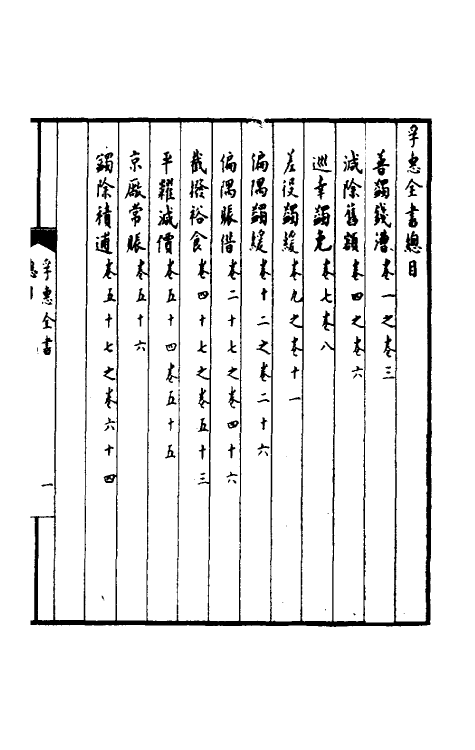 孚惠全書總目
普蠲錢漕卷一之卷三
減除舊額卷四之卷六
巡幸蠲免卷七卷八
差役蠲緩卷九之卷十一
偏隅蠲緩卷十二之卷二十六
偏隅賑借卷二十七之卷四十六
截撥裕食卷四十七之卷五十三
平糶減價卷五十四卷五十五
京廠常賑卷五十六
蠲除積逋卷五十七之卷六十四
孚惠全書
總目
一